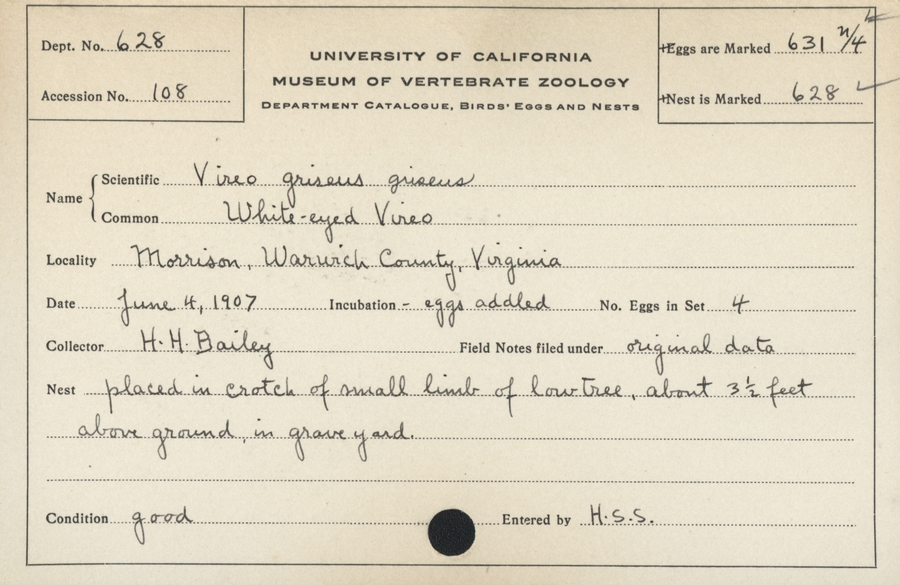 Dept. No. 628
Accession No. 108
UNIVERSITY OF CALIFORNIA
MUSEUM OF VERTEBRATE ZOOLOGY
DEPARTMENT CATALOGUE, BIRDS' EGGS AND NESTS
Eggs are Marked 631 n/4
Nest is Marked 628
Name
Scientific Vireo griseus griseus
Common White-eyed Vireo
Locality Morrison, Warwich County, Virginia
Date June 4, 1907 Incubation - eggs addled No. Eggs in Set 4
Collector H.H. Bailey Field Notes filed under original data
Nest placed in crotch of small limb of low tree, about 3½ feet
above ground, in grave yard.
Condition good Entered by H.S.S.